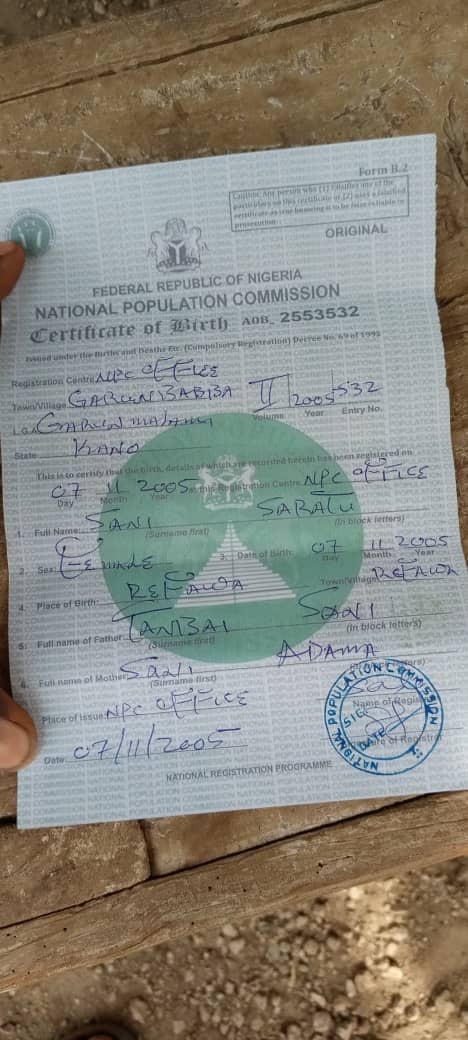 Form B.2
Caution: Any person who (1) falsifies any of the
particulars on this certificate or (2) uses a falsified
certificate as true knowing it to be false is liable to
prosecution
ORIGINAL
FEDERAL REPUBLIC OF NIGERIA
NATIONAL POPULATION COMMISSION
Certificate of Birth AOB_ 2553532
Issued under the Births and Deaths Etc. (Compulsory Registration) Decree No. 69 of 1992
Registration Centre NPC OFFICE
Town/Village GARUN BABBA II 2005 532
L.G.A. GARUN MALAM Volume Year Entry No.
State KANO
This is to certify that the birth, details of which are recorded herein has been registered on
07 11 2005 at this Registration Centre NPC OFFICE
Day Month Year
1. Full Name: SANI SARATU
(Surname first) (In block letters)
2. Sex: FEMALE 3. Date of Birth: 07 11 2005
Day Month Year
4. Place of Birth: REFAWA Town/Village REFAWA
5. Full name of Father: TANBAI SANI
(Surname first) (In block letters)
6. Full name of Mother SANI ADAMA
(Surname first)
Place of issue NPC OFFICE Name of Regis
Date: 07/11/2005 of Registrar
NATIONAL POPULATION COMMISSION
SIGN
DATE
NATIONAL REGISTRATION PROGRAMME